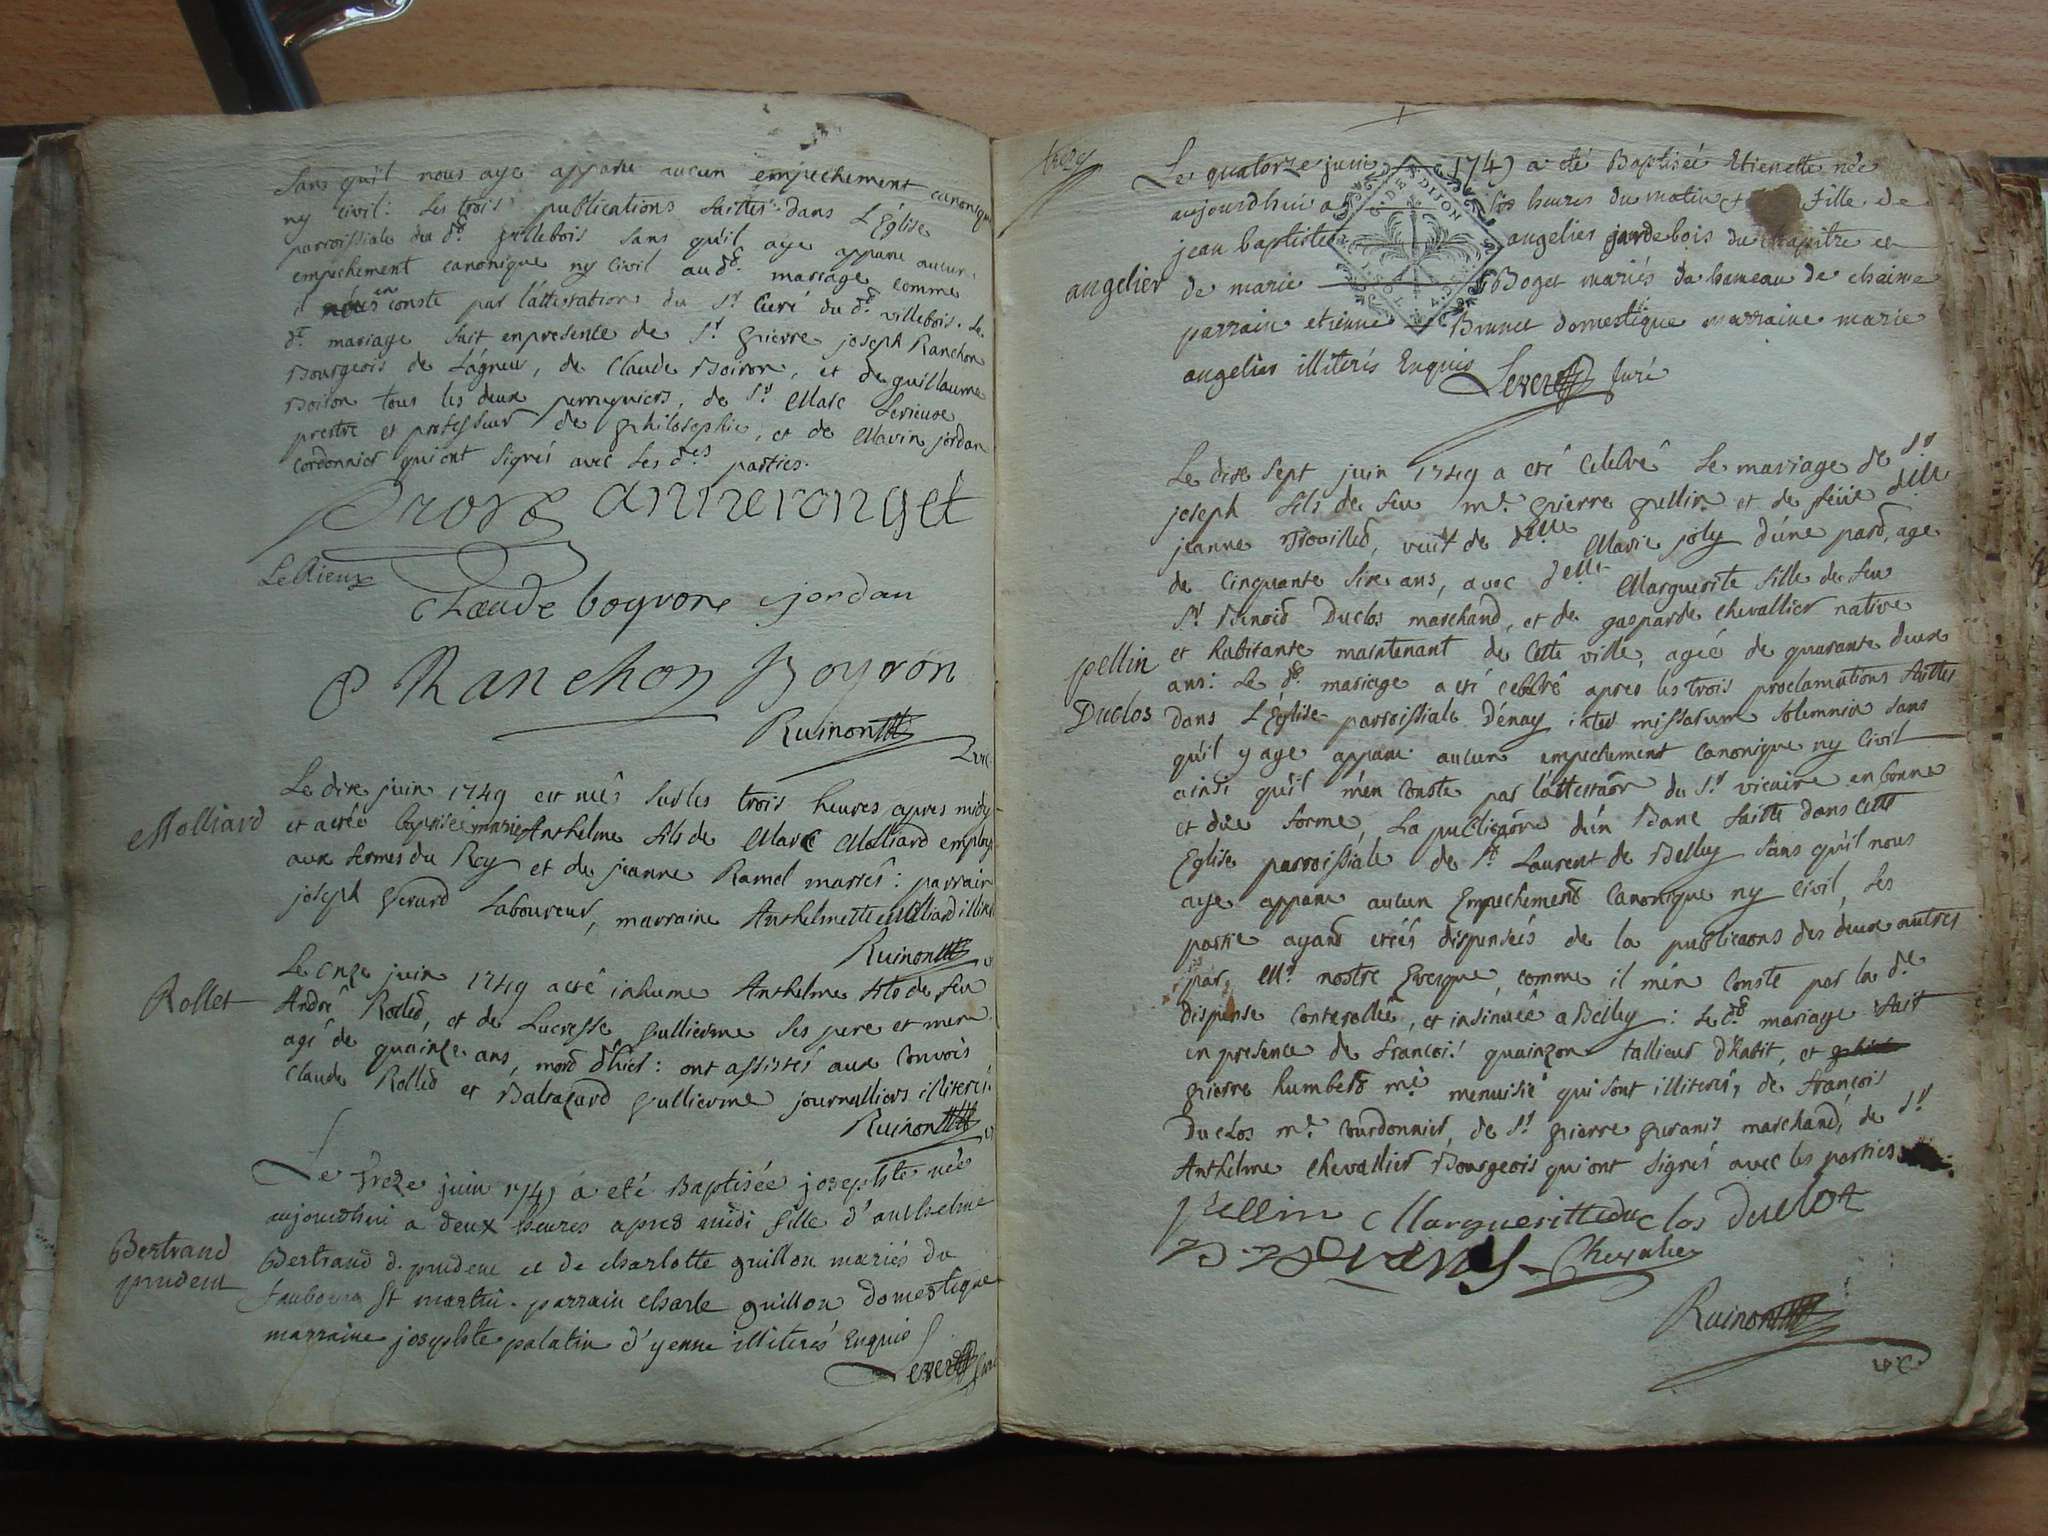 sans qu'il nous aye apparu aucun empechement canonique
ny civil: les trois publications faittes dans L'Eglise
parroissiale du dt. villebois sans qu'il aye apparu aucun
empechement canonique ny civil au dt. mariage comme
il en conste par l'attestation du Sr. Curé du dt. villebois. Le
dt. mariage fait en presence de Sr. pierre joseph Ranchon
Bourgeois de Lagneu, de Claude Boiron, et de guillaume
Boiron tous les deux perruquiers, de Sr. Marc Lerieux
prestre et professeur de philosophie, et de Marin jordan
Cordonnier qui ont signés avec les dtes parties.
anneronget
LeRieux
Claude boyron jordan
P Ranchon Boyron
Ruinon
vic.
Molliard
Le dix juin 1749 est née sur les trois heures apres midy
et a été baptisée marie Anthelme fils de Marc Molliard employé
aux fermes du Roy et de jeanne Ramel mariés: parrain
joseph Gerard Laboureur, marraine Anthelmette Molliard
Ruinon
Rollet
Le onze juin 1749 a eté inhumé Anthelme fils de feu
André Rolled, et de Lucresse Gullierme ses pere et mere
agé de quainze ans, mord d'hier: ont assistés aux Convois
Claude Rolled et Baltazard Gullierme journalliers illiterés
Ruinon
Bertrand
prudent
Le treze juin 1749 a eté Baptisée josephte née
aujourdhui a deux heures apres midi fille d'anthelme
Bertrand d. prudent et de charlotte guillon mariés du
faubourg St martin. parrain charle guillon domestique
marraine josephte palatin d'yenne illiterés Enquis
Leverd
treze
Le quatorze juin 1749 a eté Baptisée Etienette née
G. DE DIJON
aujourdhui a six heures du matin fille de
jean baptiste angelier garde bois du chapitre et
angelier
de marie Boget mariés du hameau de
parrain etienne Brunet domestique marraine marie
angelier illiterés Enquis
Leverd Curé
Le dix sept juin 1749 a eté Celebré Le mariage de Sr.
joseph fils de feu Mr. pierre pellin et de feüe delle
jeanne Trouilled, veuf de delle Marie joly d'une pard, agé
de Cinquante six ans, avec delle Marguerite fille de feu
Sr. Benoid Duclos marchand, et de gasparde Chevallier native
pellin
Duclos
et habitante maintenant de Cette ville, agée de quarante deux
ans: Le dt. mariage a eté celebré apres les trois proclamations faittes
dans L'Eglise parroissiale d'enay inter missarum solemnia sans
qu'il y aye apparu aucun empechement canonique ny Civil
ainsi qu'il m'en conste par l'attestaon du Sr. vicaire en bonne
et düe forme, La publicaon d'un Banc faitte dans Cette
Eglise parroissiale de St. Laurent de Belley sans qu'il nous
aye apparu aucun Empechement Canonique ny Civil, Les
partie ayand etées dispensées de la publicaons des deux autres
par Mr. nostre Evesque, comme il m'en conste par la dte
dispense Conterollée, et insinuée a Belley: Le dt. mariage fait
en presence de françois quainzon tallieur d'habit, et
pierre humberd me. menuisié qui sont illiterés, de françois
Duclos me. Courdonnier, de Sr. pierre marchand, de Sr.
Anthelme Chevallier Bourgeois qui ont signés avec les parties
Pellin Margueritte du Clos Duclot
Chevalier
Ruinon
vic.